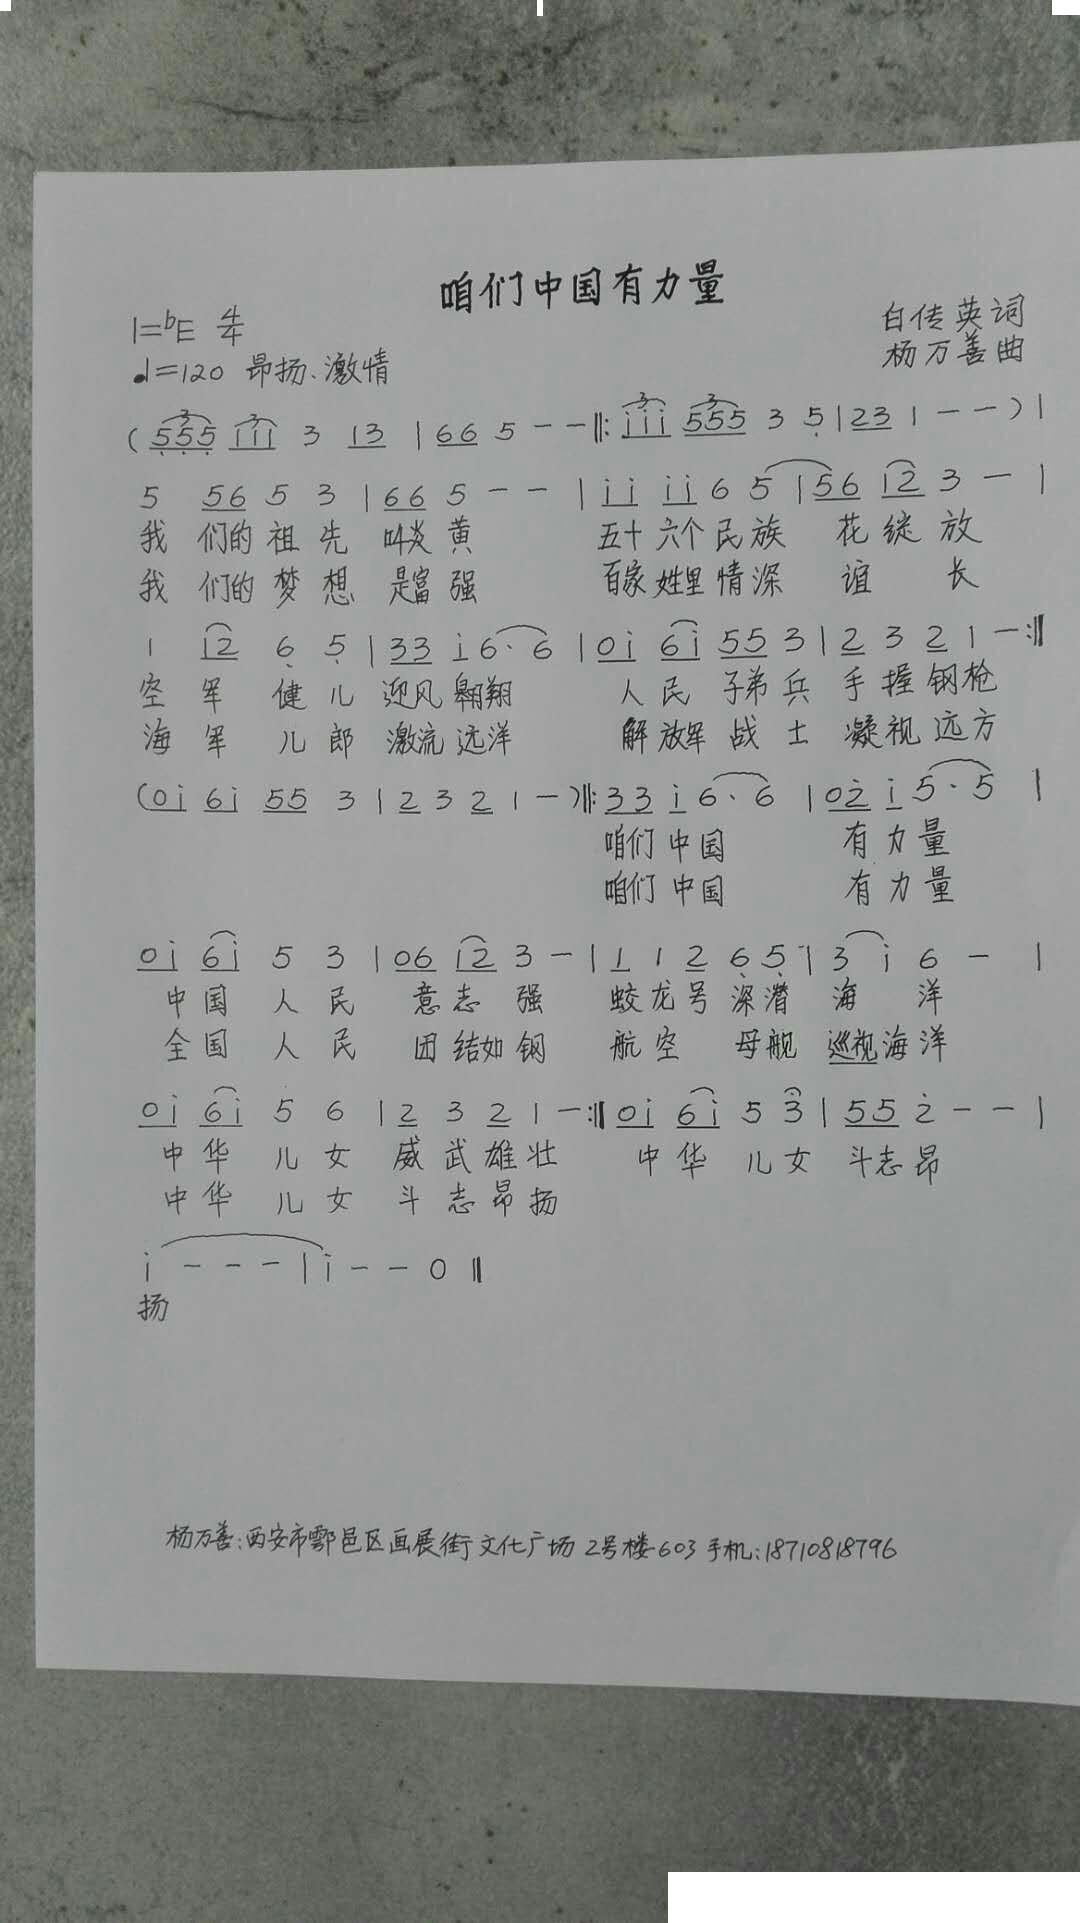 咱们中国有力量
1=bE 4/4
白传英词
♩=120 昂扬、激情
杨万善曲
(555 iii 3 13 | 66 5 - - ‖: iii 555 3 5 | 23 1 - - ) |
5 56 5 3 | 66 5 - - | ii ii 6 5 | 56 i2 3 - |
我 们的 祖 先 叫炎 黄 五十 六个 民 族 花 绽 放
我 们的 梦 想 是富 强 百家 姓里 情 深 谊 长
1 i2 6 5 | 33 i 6· 6 | 0i 6i 55 3 | 2 3 2 1 - :‖
空 军 健 儿 迎风 翱翔 人 民 子弟 兵 手 握 钢 枪
海 军 儿 郎 激流 远洋 解 放军 战 士 凝 视 远 方
(0i 6i 55 3 | 2 3 2 1 - ) ‖: 33 i 6· 6 | 02 i 5· 5 |
咱们 中 国 有 力 量
咱们 中 国 有 力 量
0i 6i 5 3 | 06 i2 3 - | 1 1 2 6 5 | 3 i 6 - |
中 国 人 民 意 志 强 蛟 龙 号 深 潜 海 洋
全 国 人 民 团 结如 钢 航 空 母 舰 巡视 海 洋
0i 6i 5 6 | 2 3 2 1 - :‖ 0i 6i 5 3 | 55 2 - - |
中 华 儿 女 威 武 雄 壮 中 华 儿 女 斗志 昂
中 华 儿 女 斗 志 昂 扬
i - - - | i - - 0 ‖
扬
杨万善:西安市鄠邑区画展街文化广场2号楼603手机:18710818796